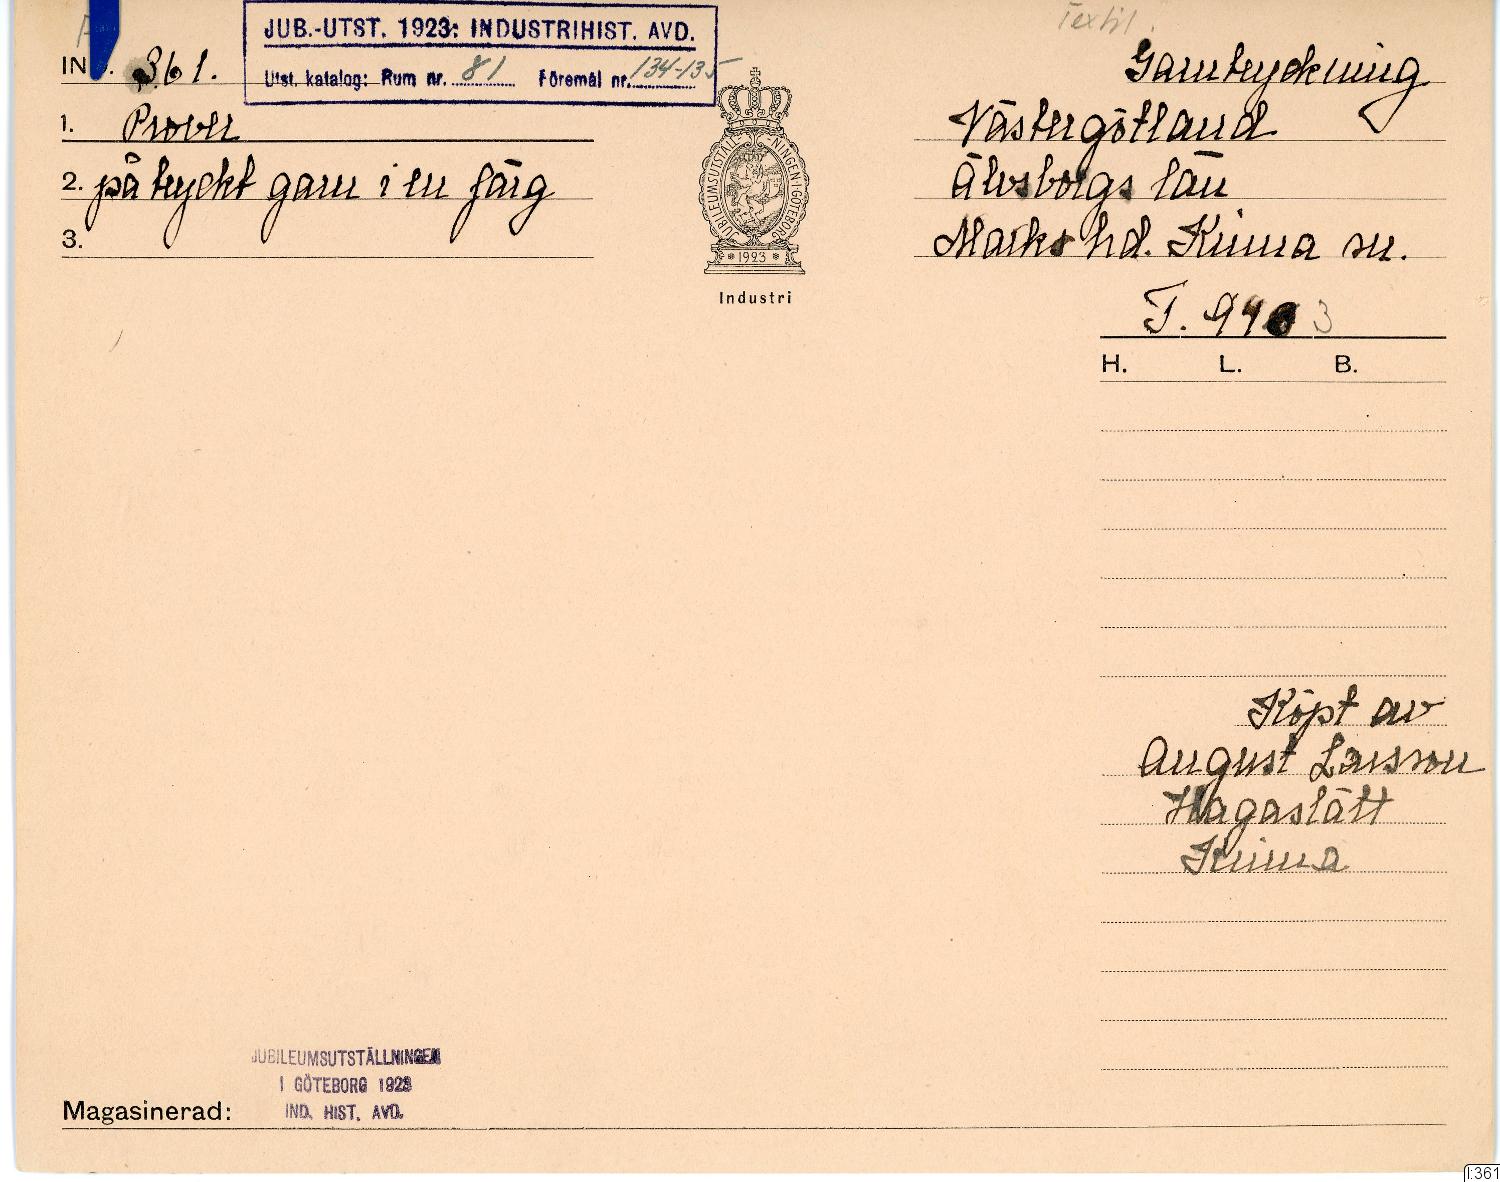 Textil.
JUB.-UTST. 1923: INDUSTRIHIST. AVD.
Utst. katalog: Rum nr. 81 Föremål nr. 134-135
IN 361.
Garntryckning
1. Prover
Västergötland
2. på tryckt garn i en färg
Älvsborgs län
3.
Marks hd. Kinna sn.
JUBILEUMSUTSTÄLLNINGEN I GÖTEBORG
1923
Industri
T. 940 3
H. L. B.
Köpt av
August Larsson
Hagaslätt
Kinna
JUBILEUMSUTSTÄLLNINGEN
I GÖTEBORG 1923
IND. HIST. AVD.
Magasinerad:
I:361